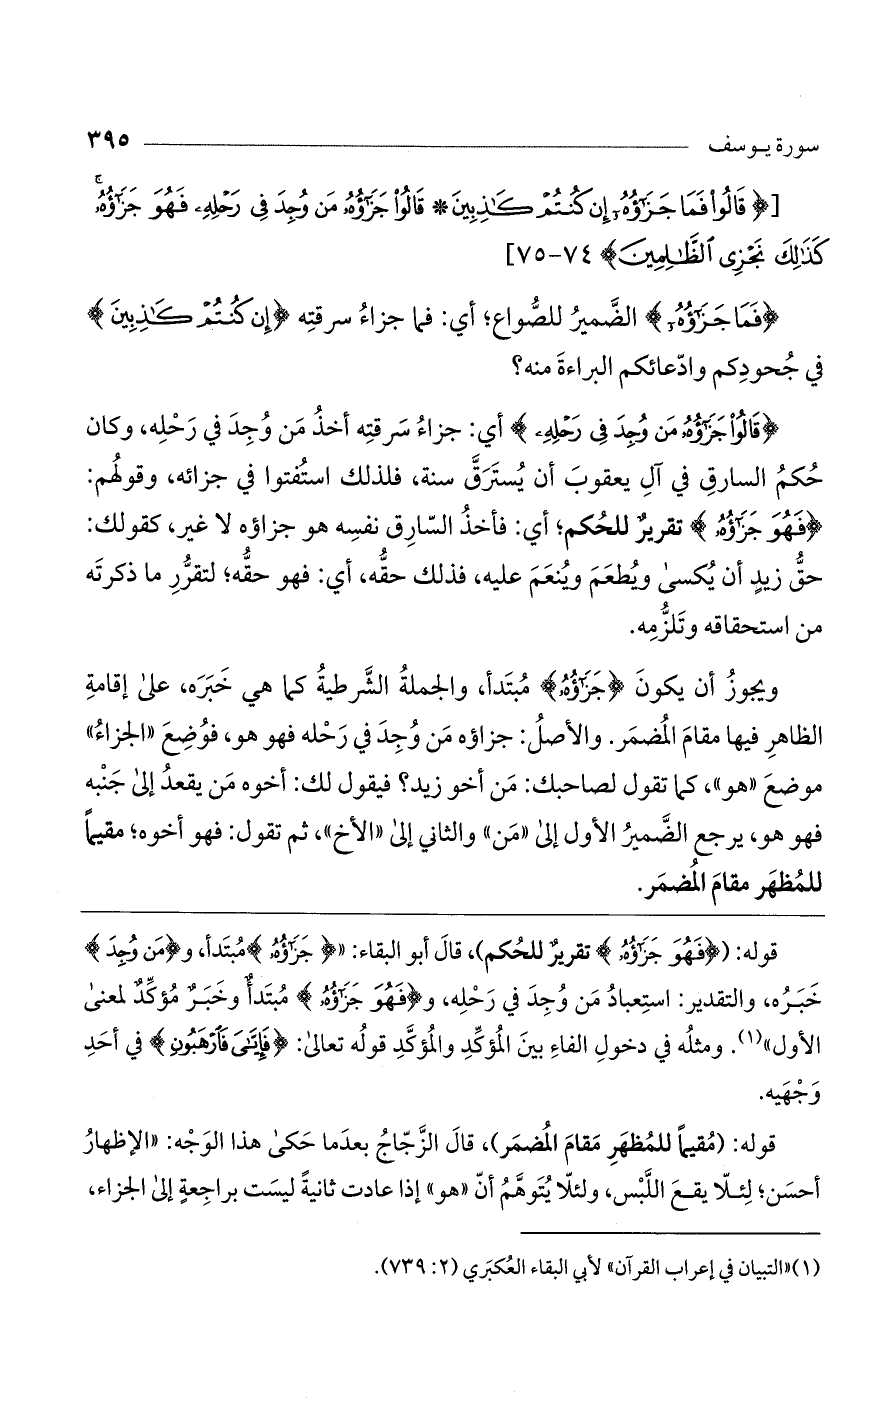 سورة يـوسف ٣٩٥
[﴿ قَالُوا۟ فَمَا جَزَٰٓؤُهُۥٓ إِن كُنتُمْ كَٰذِبِينَ * قَالُوا۟ جَزَٰٓؤُهُۥ مَن وُجِدَ فِى رَحْلِهِۦ فَهُوَ جَزَٰٓؤُهُۥ ۚ
كَذَٰلِكَ نَجْزِى ٱلظَّٰلِمِينَ﴾ ٧٤-٧٥]
﴿فَمَا جَزَٰٓؤُهُۥٓ ﴾ الضَّميرُ للصُّواع؛ أي: فما جزاءُ سرقتِه ﴿إِن كُنتُمْ كَٰذِبِينَ ﴾
في جُحودِكم وادّعائكم البراءةَ منه؟
﴿قَالُوا۟ جَزَٰٓؤُهُۥ مَن وُجِدَ فِى رَحْلِهِۦ ﴾ أي: جزاءُ سَرقتِه أخذُ مَن وُجِدَ في رَحْلِه، وكان
حُكمُ السارقِ في آلِ يعقوبَ أن يُستَرَقَّ سنة، فلذلك استُفتوا في جزائه، وقولُهم:
﴿فَهُوَ جَزَٰٓؤُهُۥ ﴾ تقريرٌ للحُكم؛ أي: فأخذُ السّارِق نفسِه هو جزاؤه لا غير، كقولك:
حقُّ زيدٍ أن يُكسىٰ ويُطعَمَ ويُنعَمَ عليه، فذلك حقُّه، أي: فهو حقُّه؛ لتقرُّرِ ما ذكرتَه
من استحقاقه وتَلزُّمِه.
ويجوزُ أن يكونَ ﴿جَزَٰٓؤُهُۥ﴾ مُبتَدأ، والجملةُ الشَّرطيةُ كما هي خَبَرَه، علىٰ إقامةِ
الظاهرِ فيها مقامَ المُضمَر. والأصلُ: جزاؤه مَن وُجِدَ في رَحْله فهو هو، فوُضِعَ «الجزاءُ»
موضعَ «هو»، كما تقول لصاحبك: مَن أخو زيد؟ فيقول لك: أخوه مَن يقعدُ إلىٰ جَنْبه
فهو هو، يرجع الضَّميرُ الأول إلىٰ «مَن» والثاني إلىٰ «الأخ»، ثم تقول: فهو أخوه؛ مقيماً
للمُظهَر مقامَ المُضمَر.
قوله: (﴿فَهُوَ جَزَٰٓؤُهُۥ ﴾ تقريرٌ للحُكم)، قالَ أبو البقاء: «﴿ جَزَٰٓؤُهُۥ ﴾مُبتَدأ، و﴿مَن وُجِدَ ﴾
خَبَرُه، والتقدير: استِعبادُ مَن وُجِدَ في رَحْلِه، و﴿فَهُوَ جَزَٰٓؤُهُۥ ﴾ مُبتَدأٌ وخَبَرٌ مُؤكِّدٌ لمعنىٰ
الأول»(١). ومثلُه في دخولِ الفاءِ بينَ المُؤكِّدِ والمُؤكَّدِ قولُه تعالىٰ: ﴿فَإِيَّٰىَ فَٱرْهَبُونِ ﴾ في أحَدِ
وَجْهَيه.
قوله: (مُقيماً للمُظهَرِ مَقامَ المُضمَر)، قالَ الزَّجّاجُ بعدَما حَكىٰ هذا الوَجْه: «الإظهارُ
أحسَن؛ لِئلّا يقعَ اللَّبْس، ولئلّا يُتَوهَّمُ أنّ «هو» إذا عادت ثانيةً ليسَت براجِعةٍ إلىٰ الجزاء،
(١)«التبيان في إعراب القرآن» لأبي البقاء العُكبَري (٢: ٧٣٩).